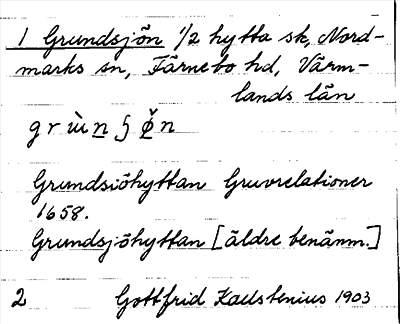 1 Grundsjön 1/2 hytta sk, Nord-
marks sn, Färnebo hd, Värm-
lands län
g r ù n ʃ ø̌ n
Grundsiöhyttan Gruvrelationer
1658.
Grundsjöhyttan [äldre benämn.]
2 Gottfrid Kallstenius 1903